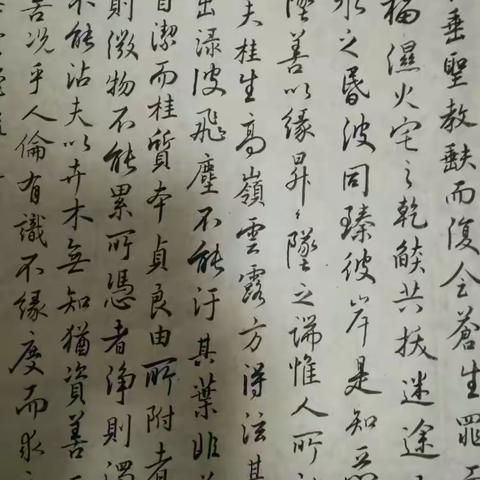 垂聖教缺而復全蒼生罪
福濕火宅之乾燄共拔迷途
水之昏波同臻彼岸是知惡
墜善以緣昇々墜之端惟人所
夫桂生高嶺雲露方得泫其
出淥波飛塵不能汙其葉非
自潔而桂質本貞良由所附者
則微物不能累所憑者淨則濁
不能沾夫以卉木無知猶資善
善況乎人倫有識不緣慶而求